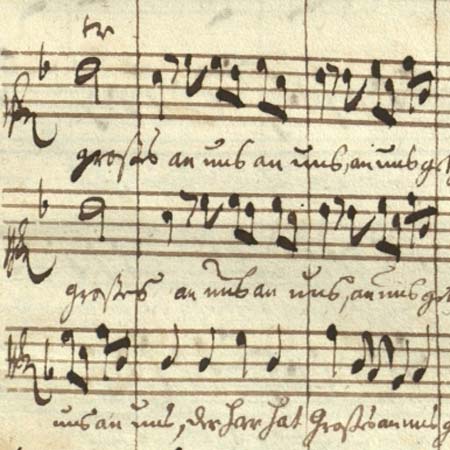 tr
großes an uns an uns, an uns get
großes an uns an uns, an uns get
uns an uns, der Herr hat Großes an uns g